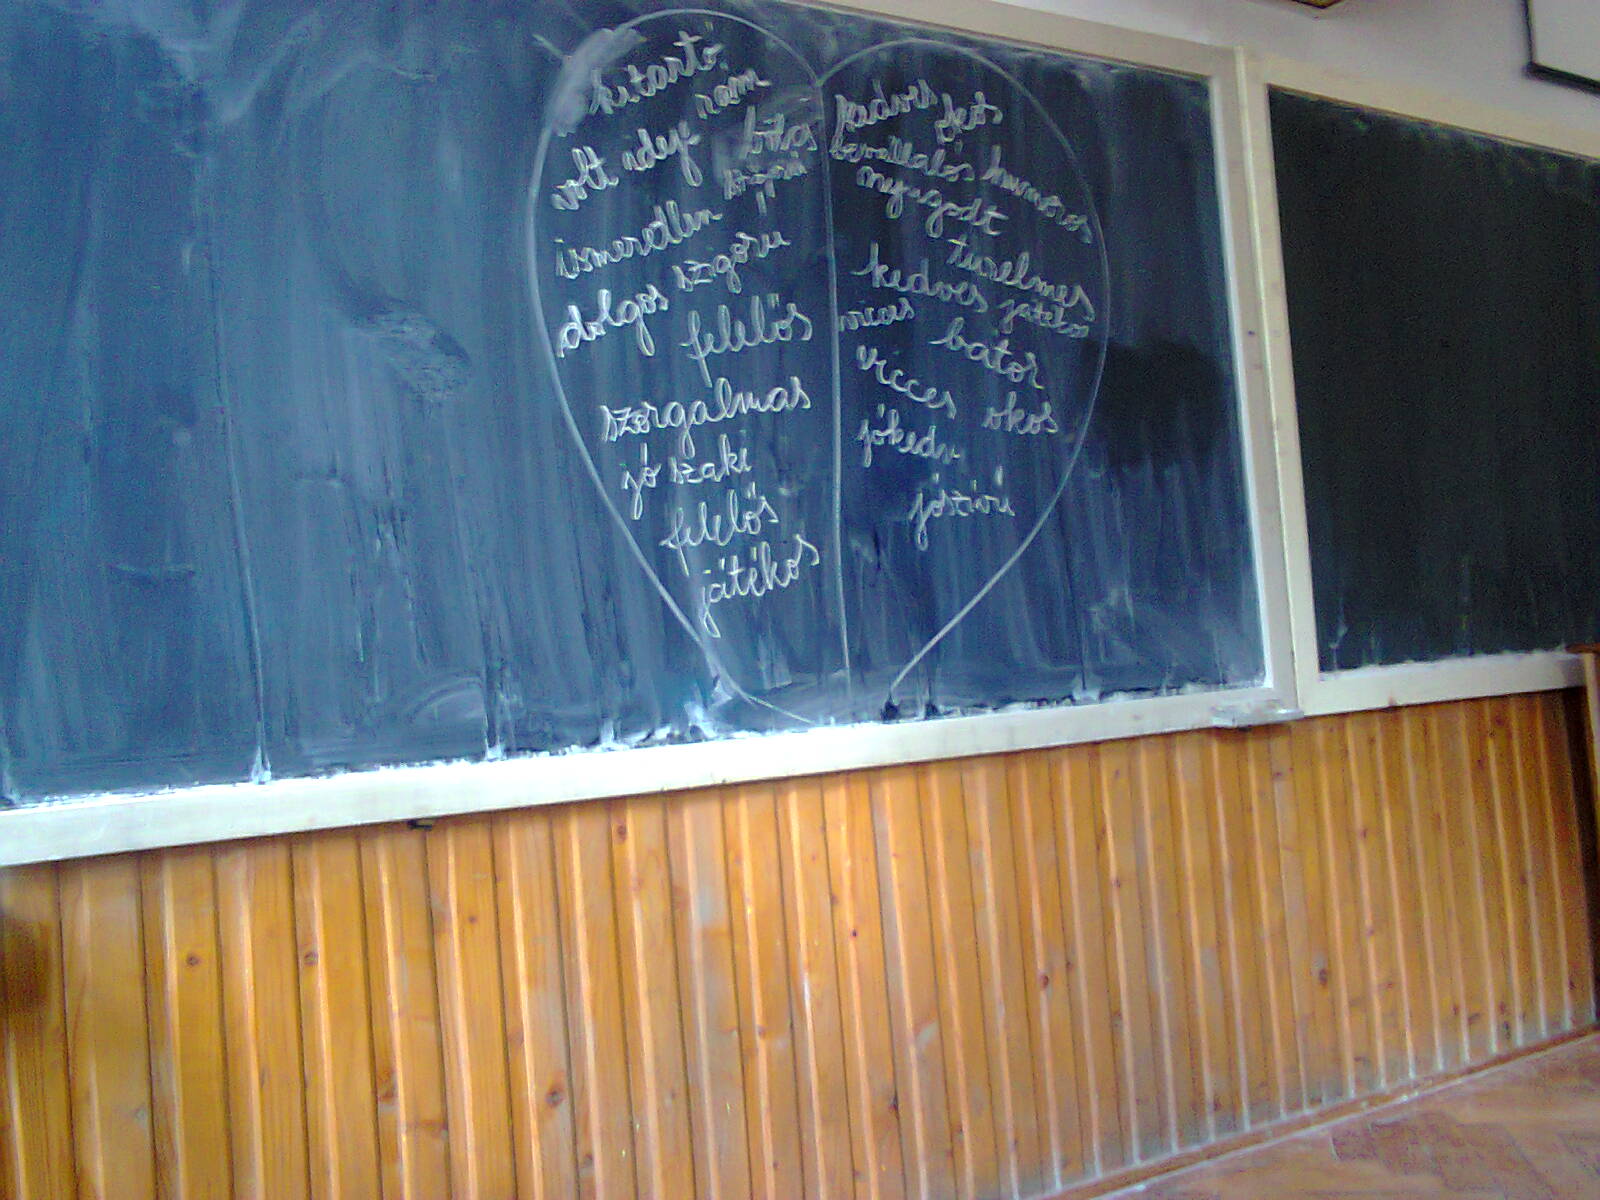 kitartó
volt
ismeretlen
dolgos szigoru
felelős
szorgalmas
jó szaki
felelős
játékos
kedves
bevállalós humoros
nyugodt
türelmes
kedves játékos
bátor
vicces okos
jókedv
jószívű